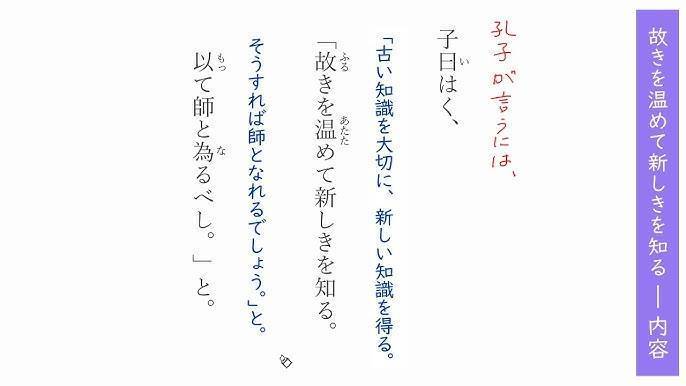 故きを温めて新しきを知る ー 内容
孔子が言うには、
子曰はく、
い
「古い知識を大切に、新しい知識を得る。
「故きを温めて新しきを知る。
ふる
あたた
そうすれば師となれるでしょう。」と。
以て師と為るべし。」と。
もっ
な